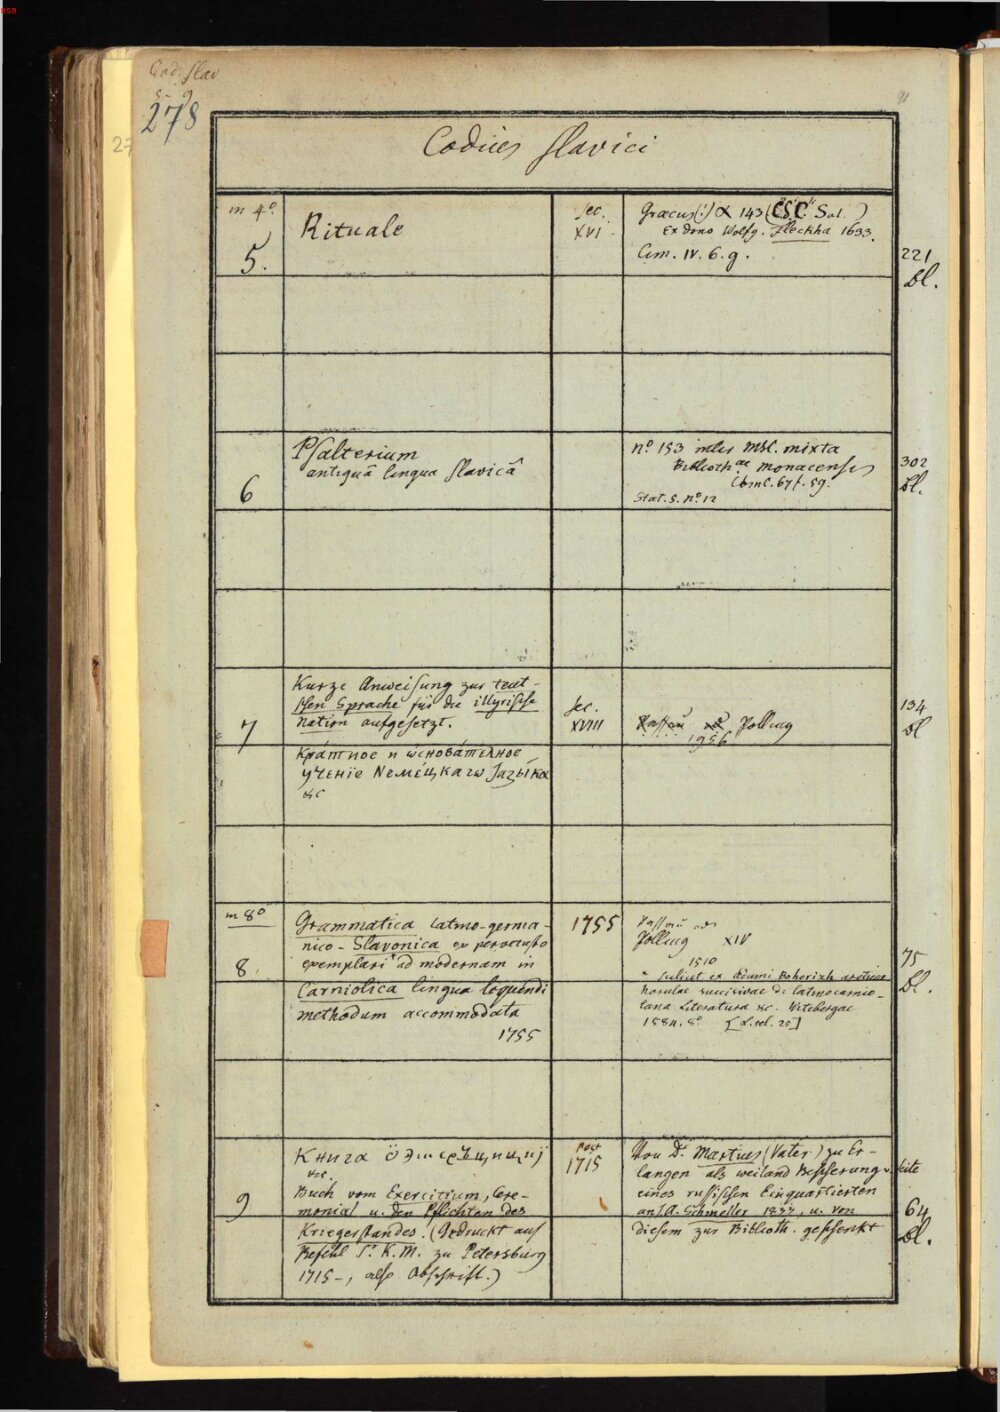 Cod. slav
5-9
278
91
Codices slavici
in 4º
5.
Rituale
sec.
XVI
Græcus(!) α 143 (CSC. Sal. )
Ex dono Wolfg. Fleckha 1633.
Cim. IV. 6. g.
221
Bl.
6
Psalterium
antiquâ lingua slavicâ
nº 153 inter Msc. mixta
Biblioth.ae monacensis
Cbm C. 67 f. 59.
Stat. 5. nº 12
302
Bl.
7
Kurze Anweisung zur teut-
schen Sprache für die illyrische
Nation aufgesetzt.
Кра́тное и ѡсновáтелное
ученіе Немéцкагѡ Јазы́ка
&c
sec.
XVIII
Passau Polling
1956
134
Bl
in 8º
8
Grammatica latino-germa-
nico-Slavonica ex pervetusto
exemplari * ad modernam in
Carniolica lingua loquendi
methodum accommodata
1755
1755
Passau
Polling XIV
1510
* scilicet ex Adami Bohorizh arcticae
horulae succisivae de latinocarnio-
lana literatura &c. Witebergae
1584. 8º [L. rel. 25]
75
Bl.
9
Книга
&c.
Buch vom Exercitium, Cere-
monial u. den Pflichten des
Kriegerstandes. (Gedruckt auf
Befehl Sr. K. M. zu Petersburg
1715-, also Abschrift.)
post
1715
Von Dr. Martius (Vater) zu Er-
langen als weiland Besitzerung
eines russischen Einquartierten
an J. A. Schmeller 1833, u. von
diesem zur Biblioth. geschenkt
64
Bl.